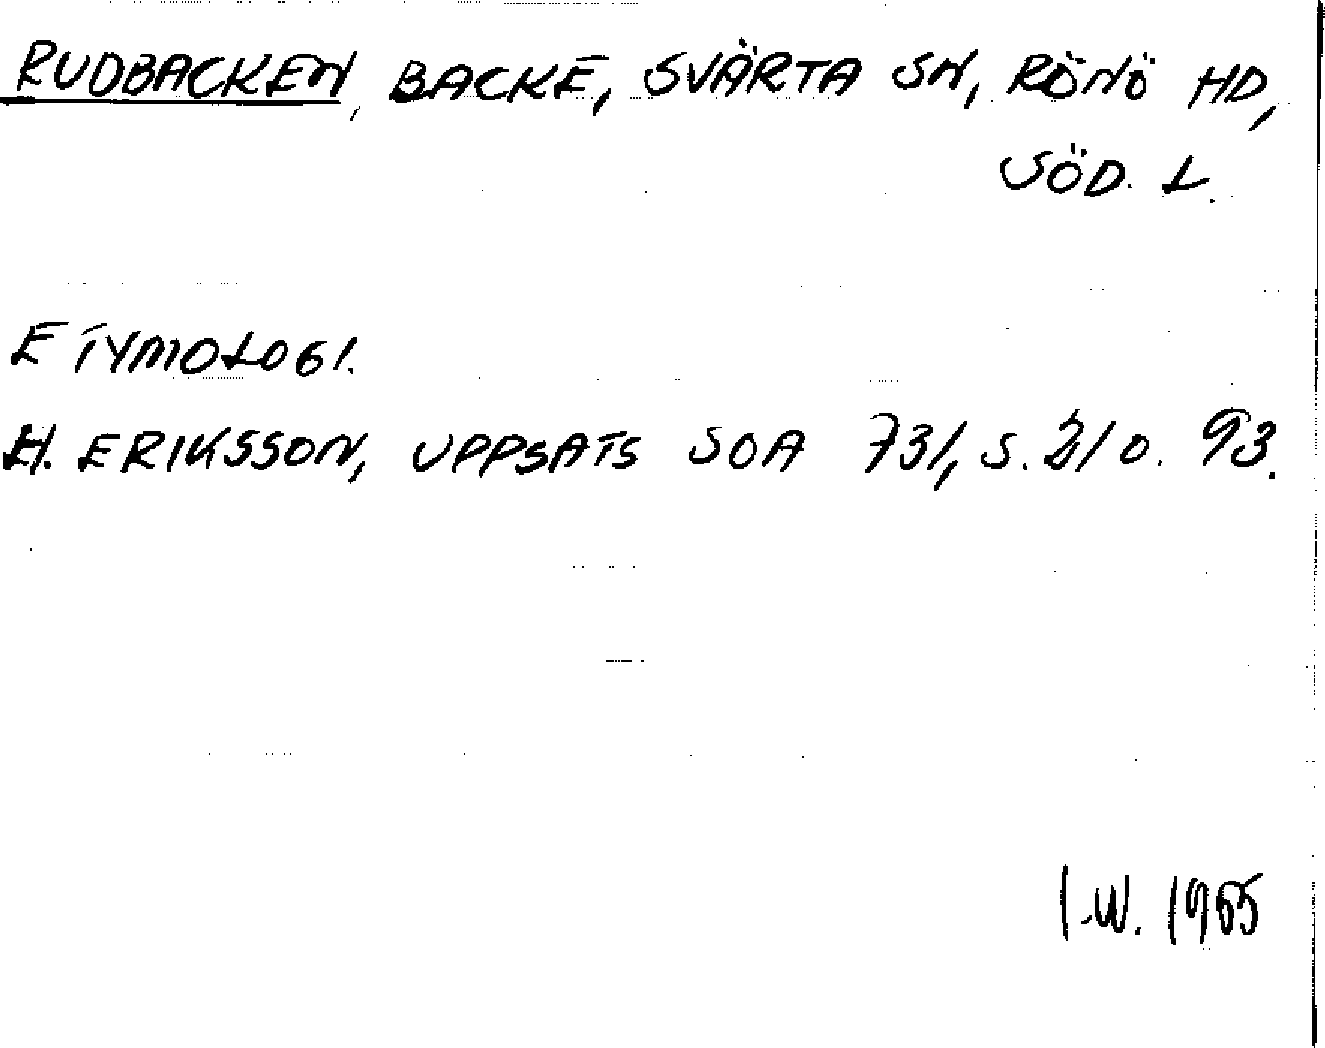 RUDBACKEN, BACKE, SVÄRTA SN, RÖNÖ HD,
SÖD. L.
ETYMOLOGI.
H. ERIKSSON, UPPSATS SOA 731, S. 21 O. 93.
I.W. 1965